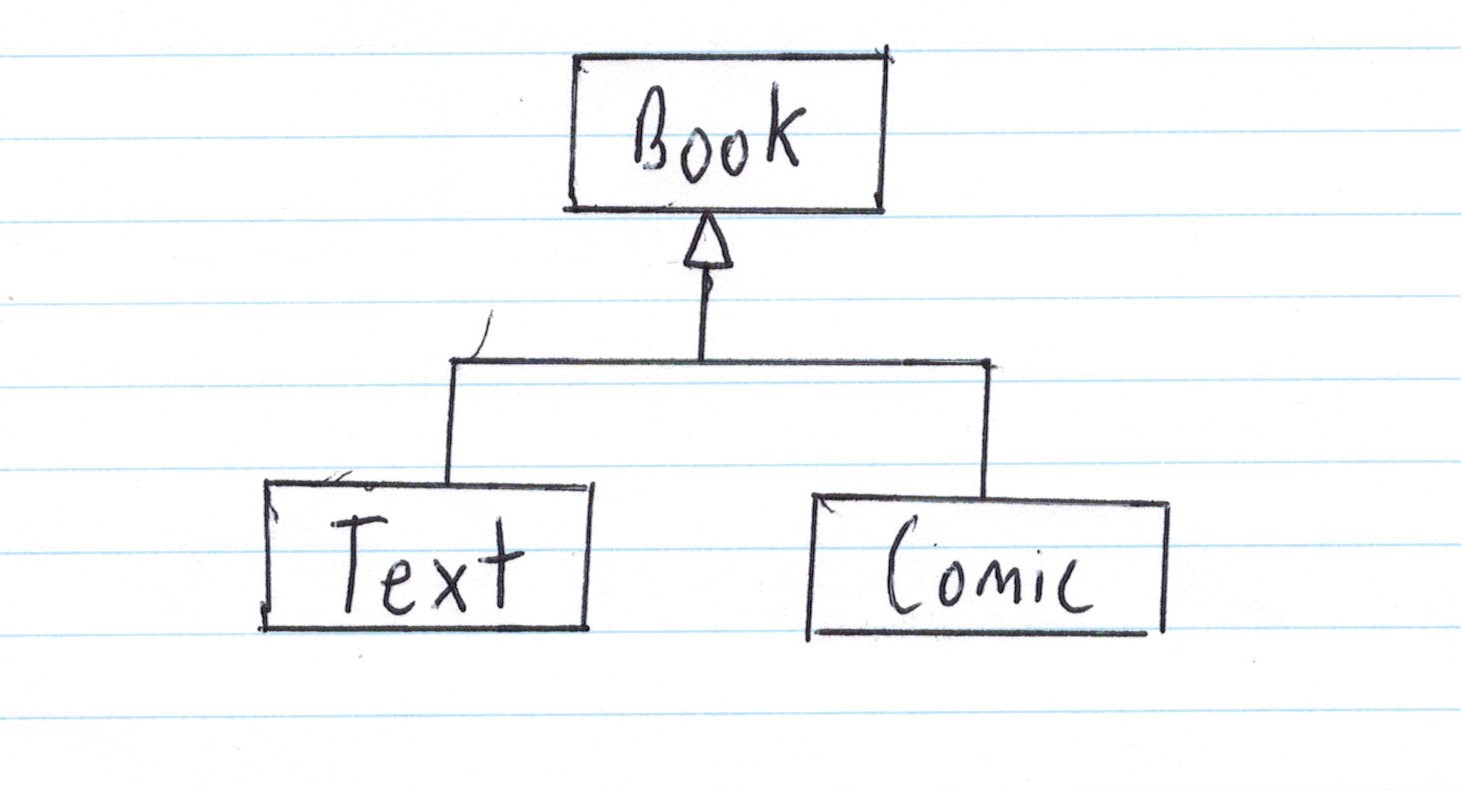 Book
Text
Comic